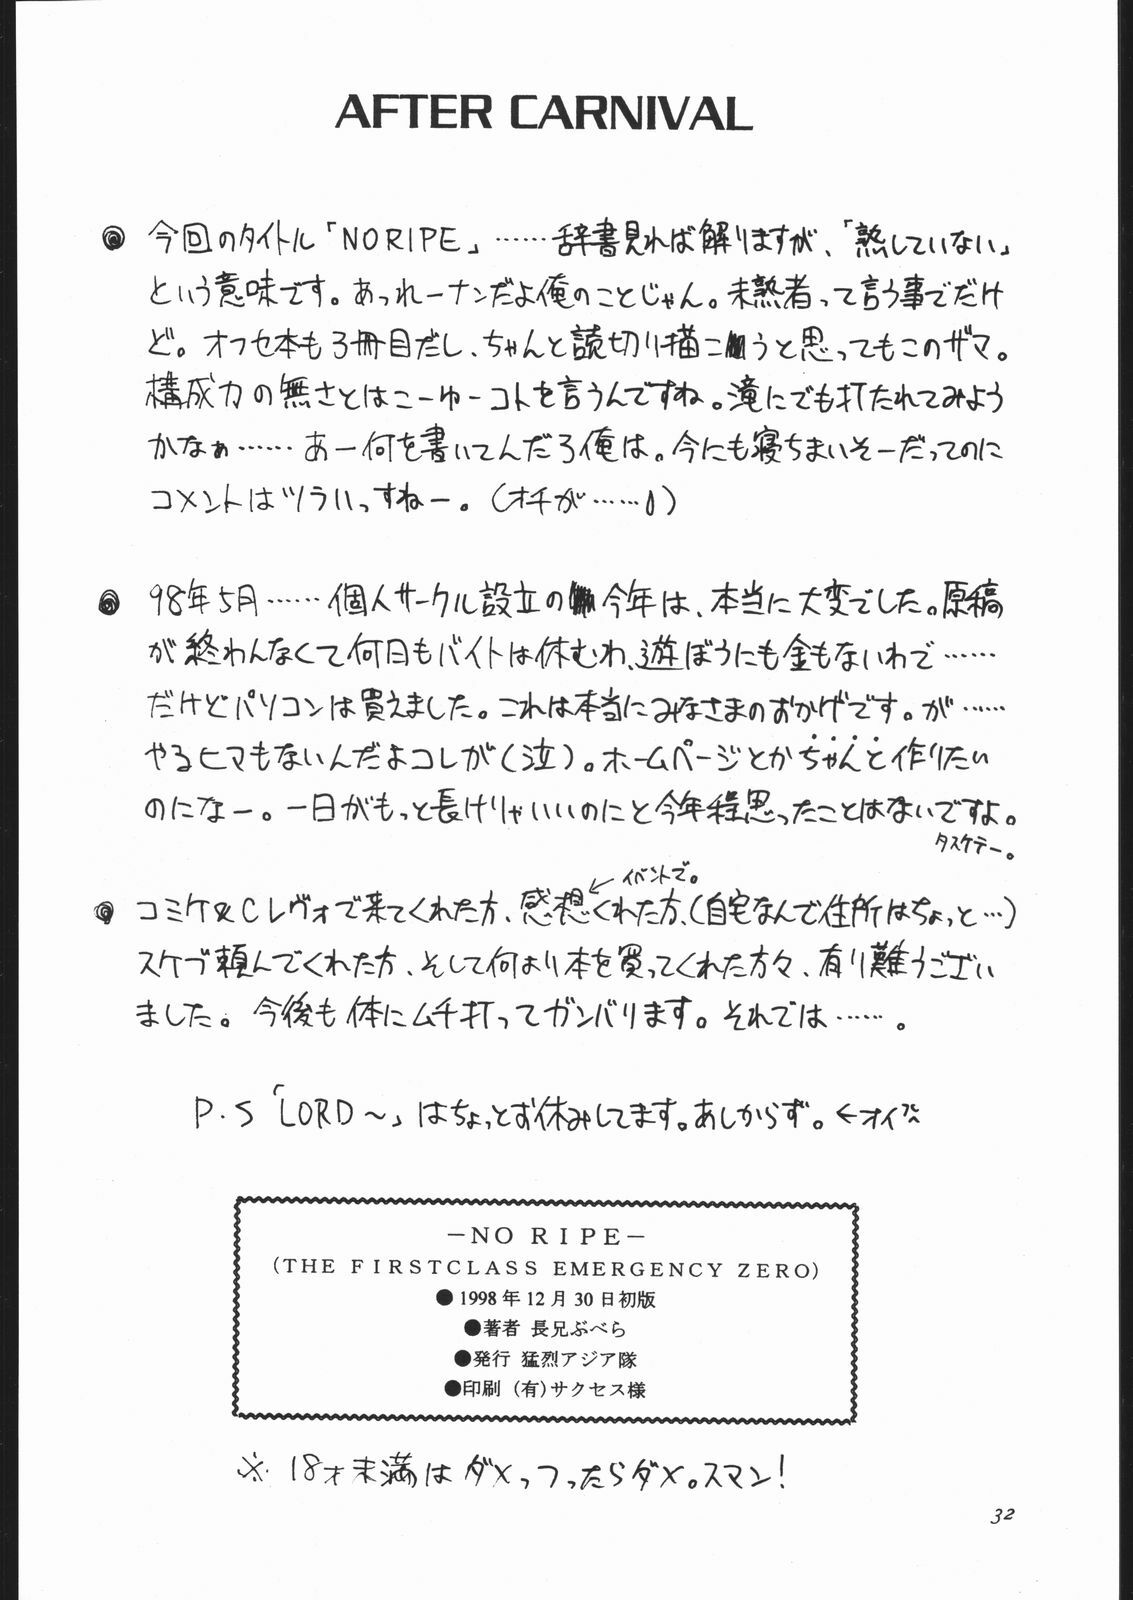 AFTER CARNIVAL
◎ 今回のタイトル「NO RIPE」……辞書見れば解りますが、「熟していない」
という意味です。あっれーナンだよ俺のことじゃん。未熟者って言う事でだけ
ど。オフセ本も3冊目だし、ちゃんと読切り描こうと思ってもこのザマ。
構成力の無さとはこーゆーコトを言うんですね。滝にでも打たれてみよう
かなぁ……あー何を書いてんだろ俺は。今にも寝ちまいそーだってのに
コメントはツラいっすねー。(オチが……)
◎ 98年5月……個人サークル設立の今年は、本当に大変でした。原稿
が終わんなくて何日もバイトは休むわ、遊ぼうにも金もないわで……
だけどパソコンは買えました。これは本当にみなさまのおかげです。が……
やるヒマもないんだよコレが(泣)。ホームページとかちゃんと作りたい
のになー。一日がもっと長けりゃいいのにと今年程思ったことはないですよ。
タスケテー。
←イベントで。
◎ コミケ&Cレヴォで来てくれた方、感想くれた方、(自宅なんで住所はちょっと…)
スケブ頼んでくれた方、そして何より本を買ってくれた方々、有り難うござい
ました。今後も体にムチ打ってガンバります。それでは……。
P.S「LORD〜」はちょっとお休みしてます。あしからず。←オイ
－NO RIPE－
(THE FIRSTCLASS EMERGENCY ZERO)
●1998年12月30日初版
●著者 長兄ぶべら
●発行 猛烈アジア隊
●印刷 (有)サクセス様
※ 18才未満はダメっつったらダメ。スマン!
32